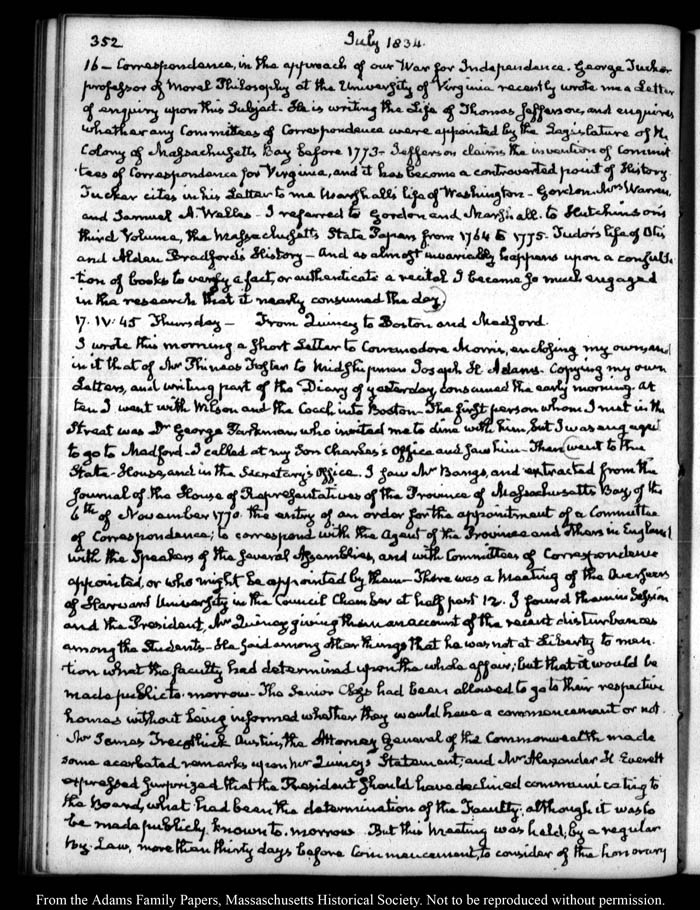 352 July 1834.
16 – Correspondence, in the approach of our War for Independence. George Tucker
professor of Moral Philosophy at the University of Virginia recently wrote me a Letter
of enquiry upon this Subject. He is writing the Life of Thomas Jefferson, and enquires
whether any Committees of Correspondence were appointed by the Legislature of the
Colony of Massachusetts Bay before 1773 – Jefferson claims the invention of Commit
tees of Correspondence for Virginia, and it has become a controverted point of History.
Tucker cites in his Letter to me Marshall's life of Washington – Gordon, Mrs Warren,
and Samuel A. Welles – I referred to Gordon and Marshall. to Hutchinson's
third Volume, the Massachusetts State Papers from 1764 to 1775. Tudor's life of Otis
and Alden Bradford's History – And as almost invariably happens upon a consulta
-tion of books to verify a fact, or authenticate a recital I became so much engaged
in the research that it nearly consumed the day.
17. IV: 45 Thursday – From Quincy to Boston and Medford.
I wrote this morning a short Letter to Commodore Morris, enclosing my own, and
in it that of Mr Phineas Foster to Midshipman Joseph H. Adams. Copying my own
Letters, and writing part of the Diary of yesterday, consumed the early morning. At
ten I went with Wilson and the Coach into Boston – The first person whom I met in the
Street was Dr George Parkman who invited me to dine with him, but I was engaged
to go to Medford – I called at my Son Charles's Office and saw him – Then went to the
State-House, and in the Secretary's Office. I saw Mr Bangs, and extracted from the
Journal of the House of Representatives of the Province of Massachusetts Bay, of the
6th of November 1770. the entry of an order for the appointment of a Committee
of Correspondence; to correspond with the Agent of the Province and others in England
with the Speakers of the several Assemblies, and with Committees of Correspondence
appointed, or who might be appointed by them – There was a Meeting of the Overseers
of Harvard University in the Council Chamber at half past 12. I found them in Session
and the President, Mr Quincy giving them an account of the recent disturbances
among the Students – He said among other things that he was not at Liberty to men
tion what the faculty had determined upon the whole affair; but that it would be
made public to-morrow – The Senior Class had been allowed to go to their respective
homes without being informed whether they would have a commencement or not.
Mr James Trecothick Austin, the Attorney General of the Commonwealth made
some acerbated remarks upon Mr Quincy's Statement, and Mr Alexander H. Everett
expressed surprized that the President should have declined communicating to
the Board, what had been the determination of the Faculty; although it was to
be made publicly known to-morrow. But this Meeting was held, by a regular
by-Law, more than thirty days before Commencement, to consider of the honorary
From the Adams Family Papers, Massachusetts Historical Society. Not to be reproduced without permission.